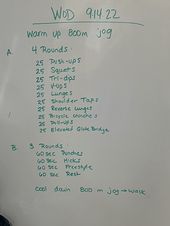 WOD 9.14.22
Warm up 800m jog
A. 4 Rounds
25 Push-ups
25 Squats
25 Tri-dips
25 V-ups
25 Lunges
25 Shoulder Taps
25 Reverse lunges
25 Bicycle crunches
25 Pull-ups
25 Elevated Glute Bridge
B. 3 Rounds
60 sec Punches
60 sec Kicks
60 sec Freestyle
60 sec Rest
cool down 800 m jog → walk